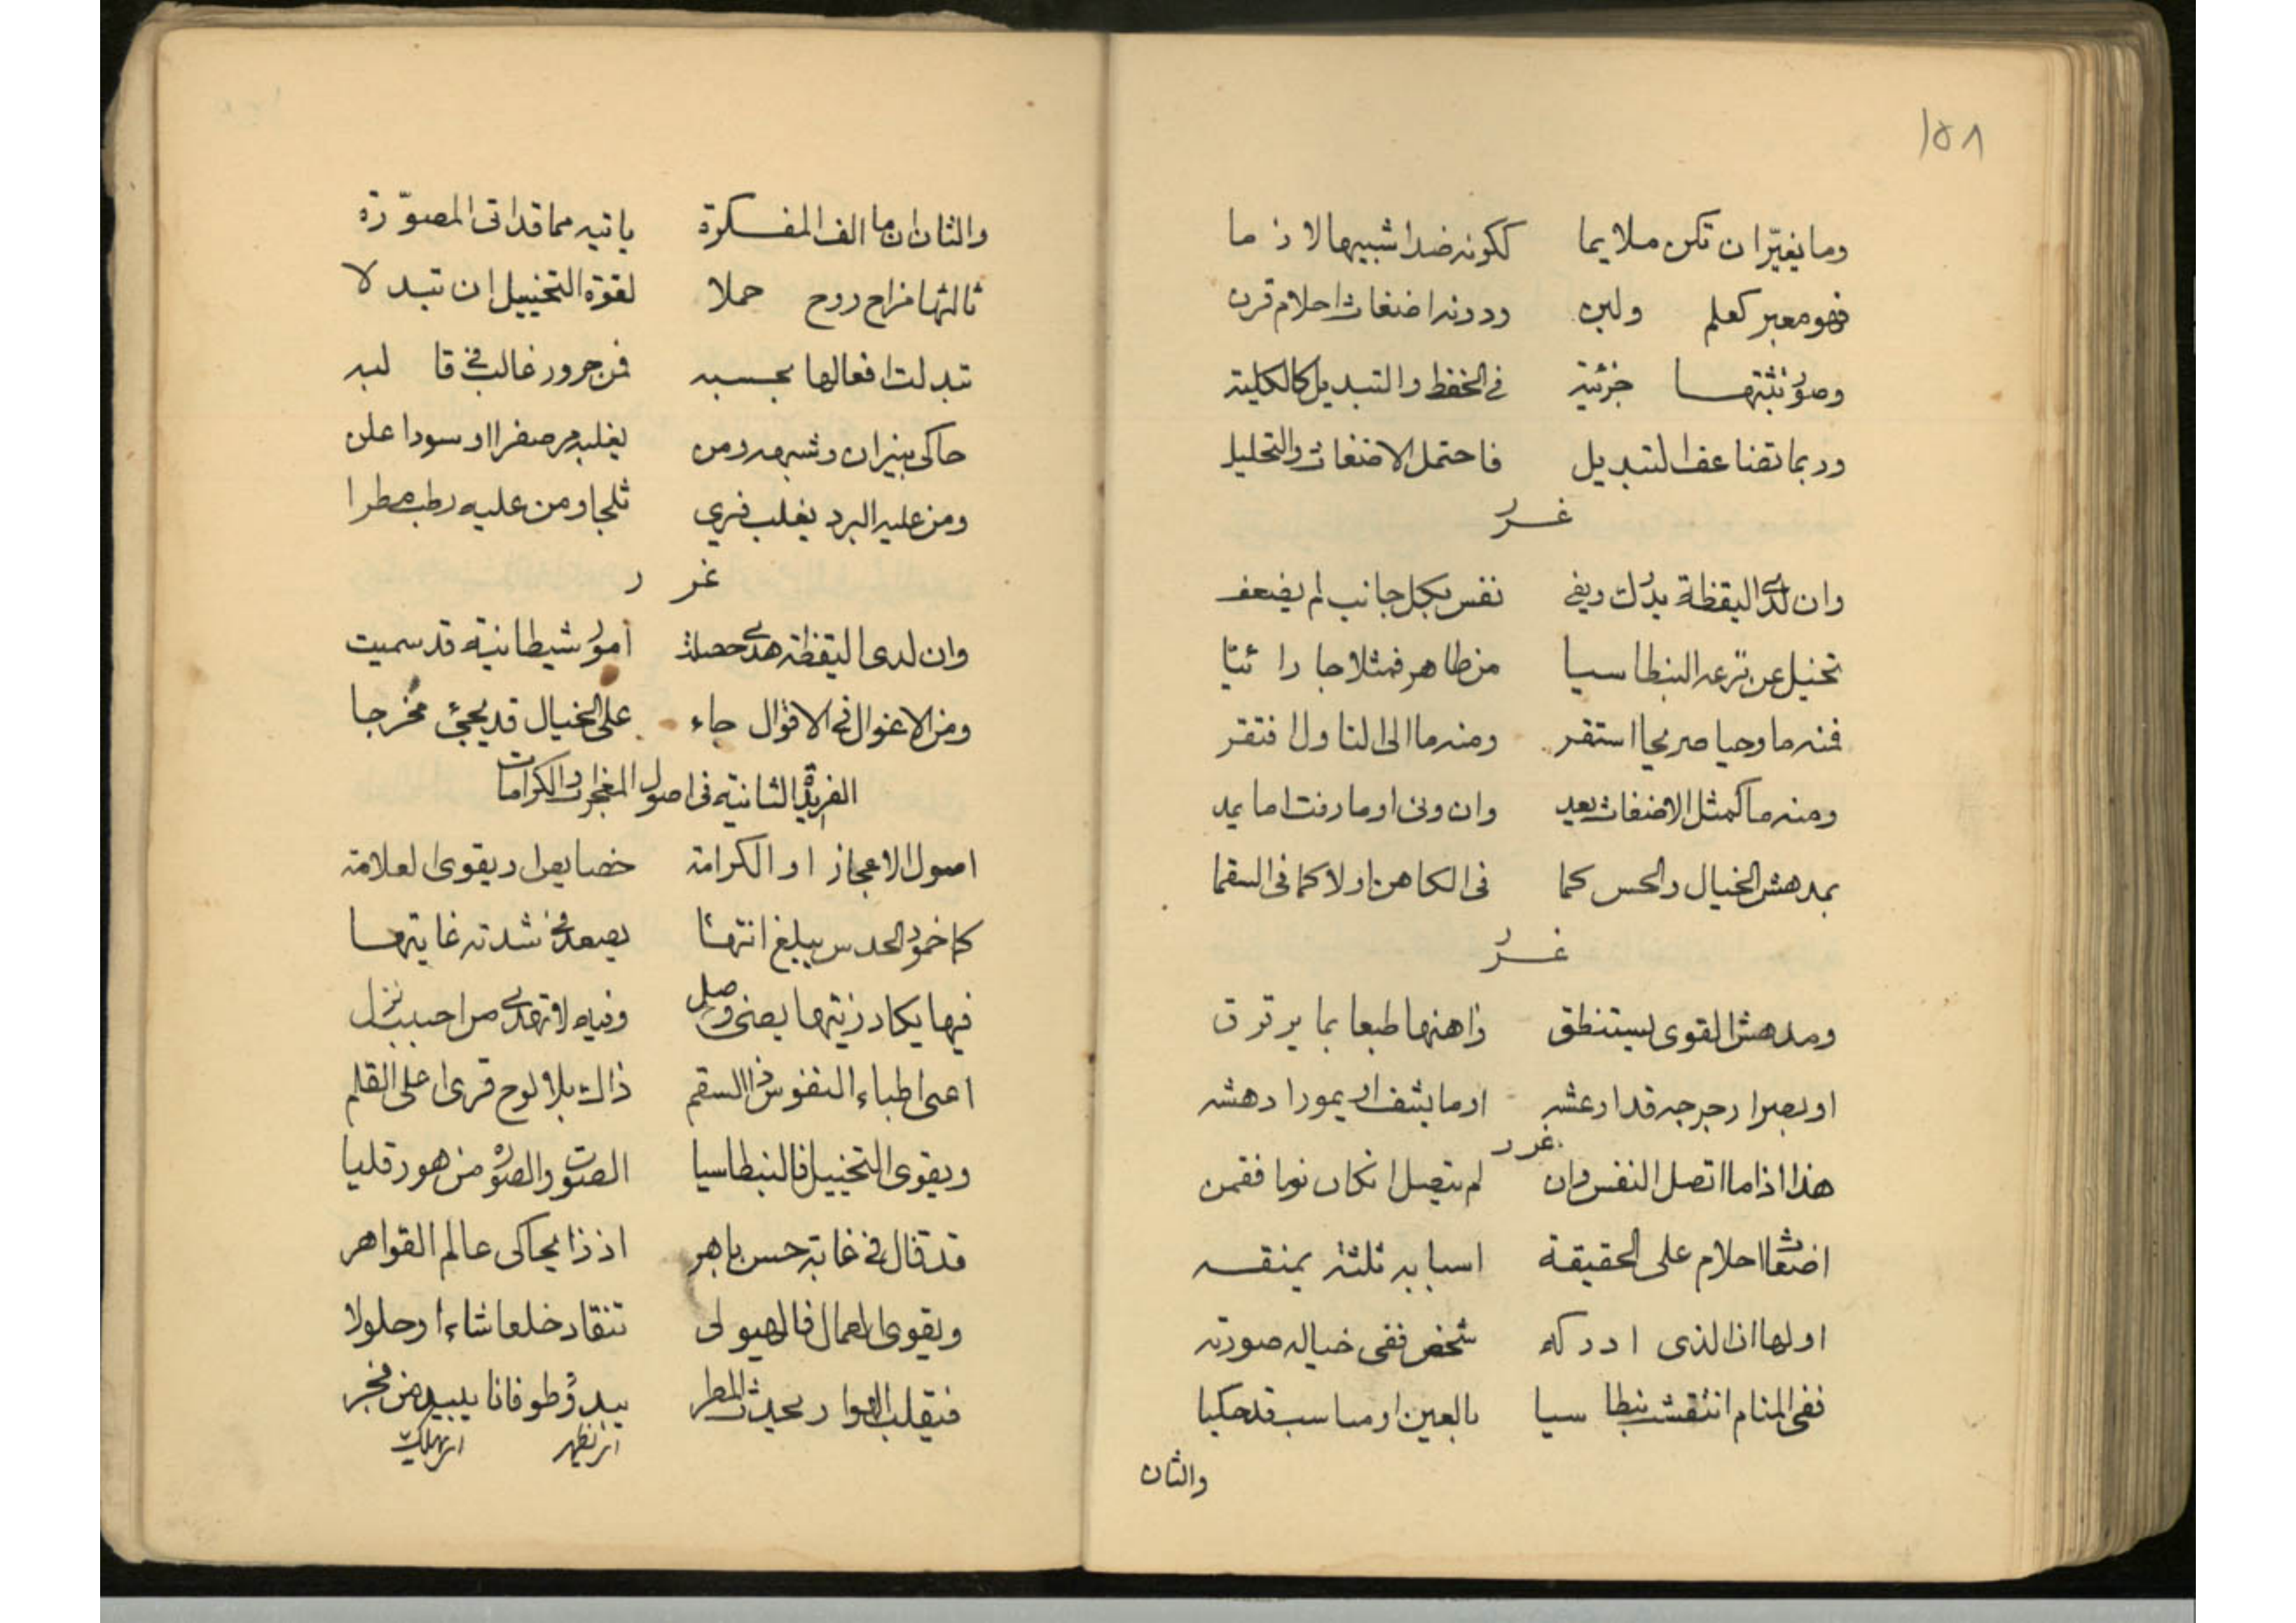 ١٥٨
وما يغيّر ان تكن ملايما ككونه ضدا شبيها لازما
فهو معبر كعلم ولبن ودونه اضغاث احلام قرن
وصور نثبتها جزئية في الحفظ والتبديل كالكلية
وربما تضاعف التبديل فاحتمل الاضغاث والتحليل
غرر
وان لدى اليقظة يدرك ويفي نفس بكل جانب لم يضعف
تخيل عن نزعه البنطاسيا من ظاهر فمثلا جا رائيا
فمنه ما وحيا صريحا استقر ومنه ما الى التاول افتقر
ومنه ما كمثل الاضغاث يعد وان ونى او مارنت اما يمد
بمدهش الخيال والحس كما في الكاهن اولا كما في السقما
غرر
ومدهش القوى يستنطق ذاهنها طبعا بما يرترق
او بصرا رجرجه قد ارعشه او ما يشف او يمور ادهشه
غرر
هذا اذا ما اتصل النفس وان لم يتصل ان كان نوما فقمن
اضغاث احلام على الحقيقة اسبابه ثلثة بمنقسه
اولها ان الذى ادركه شخص ففي خياله صورته
ففي المنام انتقشت بنطاسيا بالعين او مناسب قد حكيا
والثان
والثان ان ما الف المفكرة ياتيه مما قد اتى المصوّرة
ثالثها مزاج روح حملا لقوة التخييل ان تبدلا
تبدلت افعالها بحسبه فمن حرور غالب في قالبه
حاكى بنيران وشبهه ومن يغلبه مر صفرا او سودا علن
ومن عليه البرد يغلب فيري ثلجا ومن عليه رطب مطرا
غرر
وان لدى اليقظة هدى حصلت امور شيطانية قد سميت
ومن الاغوال في الاقوال جاء على الخيال قد يجئ مخرجا
الفريدة الثانية في اصول المعجزات والكرامات
اصول الاعجاز او الكرامة خصايص ويقوى العلامة
كما خمود الحدس يبلغ انتهائا يصعد في شدته غايتها
فيها يكاد زيتها يضئ وصل وفيه لا تهدى من احببت نزل
اعى اطباء النفوس ذا السقم ذاك بلا لوح قرى اعلى القلم
ويقوى التخييل فالبنطاسيا الصوت والصورة من هورقليا
قد تنال في غاية حسن باهر اذ ذا يحاكى عالم القواهر
ويقوى العمال فالهيولى تنقاد خلعا شاء او حلولا
فيقلب الهوا ويحدث المطر يبدو طوفانا يبيد من فجر
اى يظهر اى يهلك